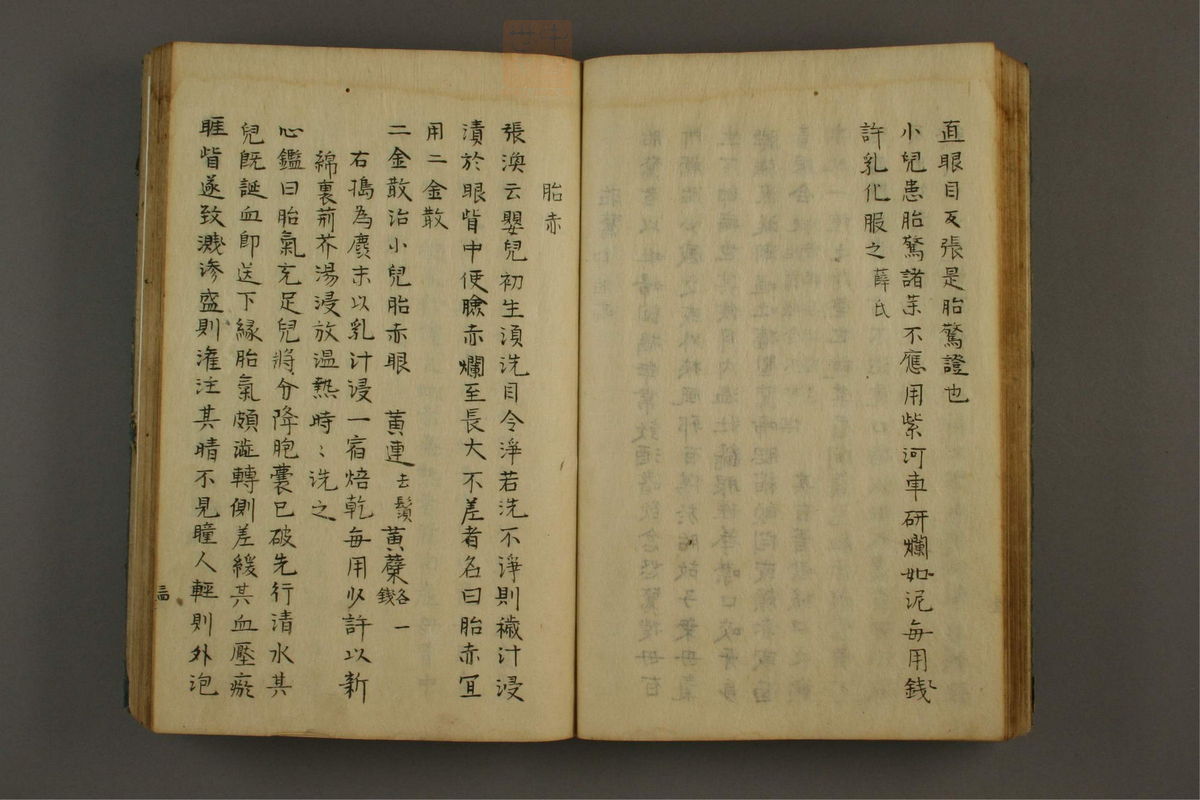 直眼目反張是胎驚證也
小兒患胎驚諸藥不應用紫河車研爛如泥每用錢
許乳化服之 薛氏
胎赤
張渙云嬰兒初生須洗目令淨若洗不淨則穢汁浸
漬於眼眥中便瞼赤爛至長大不差者名曰胎赤宜
用二金散
二金散治小兒胎赤眼 黃連去鬚 黃蘗各一錢
右搗為麄末以乳汁浸一宿焙乾每用少許以新
綿裹荊芥湯浸放溫熱時〻洗之
心鑑曰胎氣充足兒將分降胞囊已破先行清水其
兒既誕血即送下緣胎氣頗澁轉側差緩其血壓瘀
睚眥遂致濺滲盛則灌注其睛不見瞳人輕則外泡